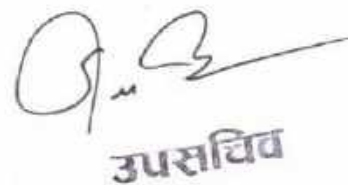 उपसचिव